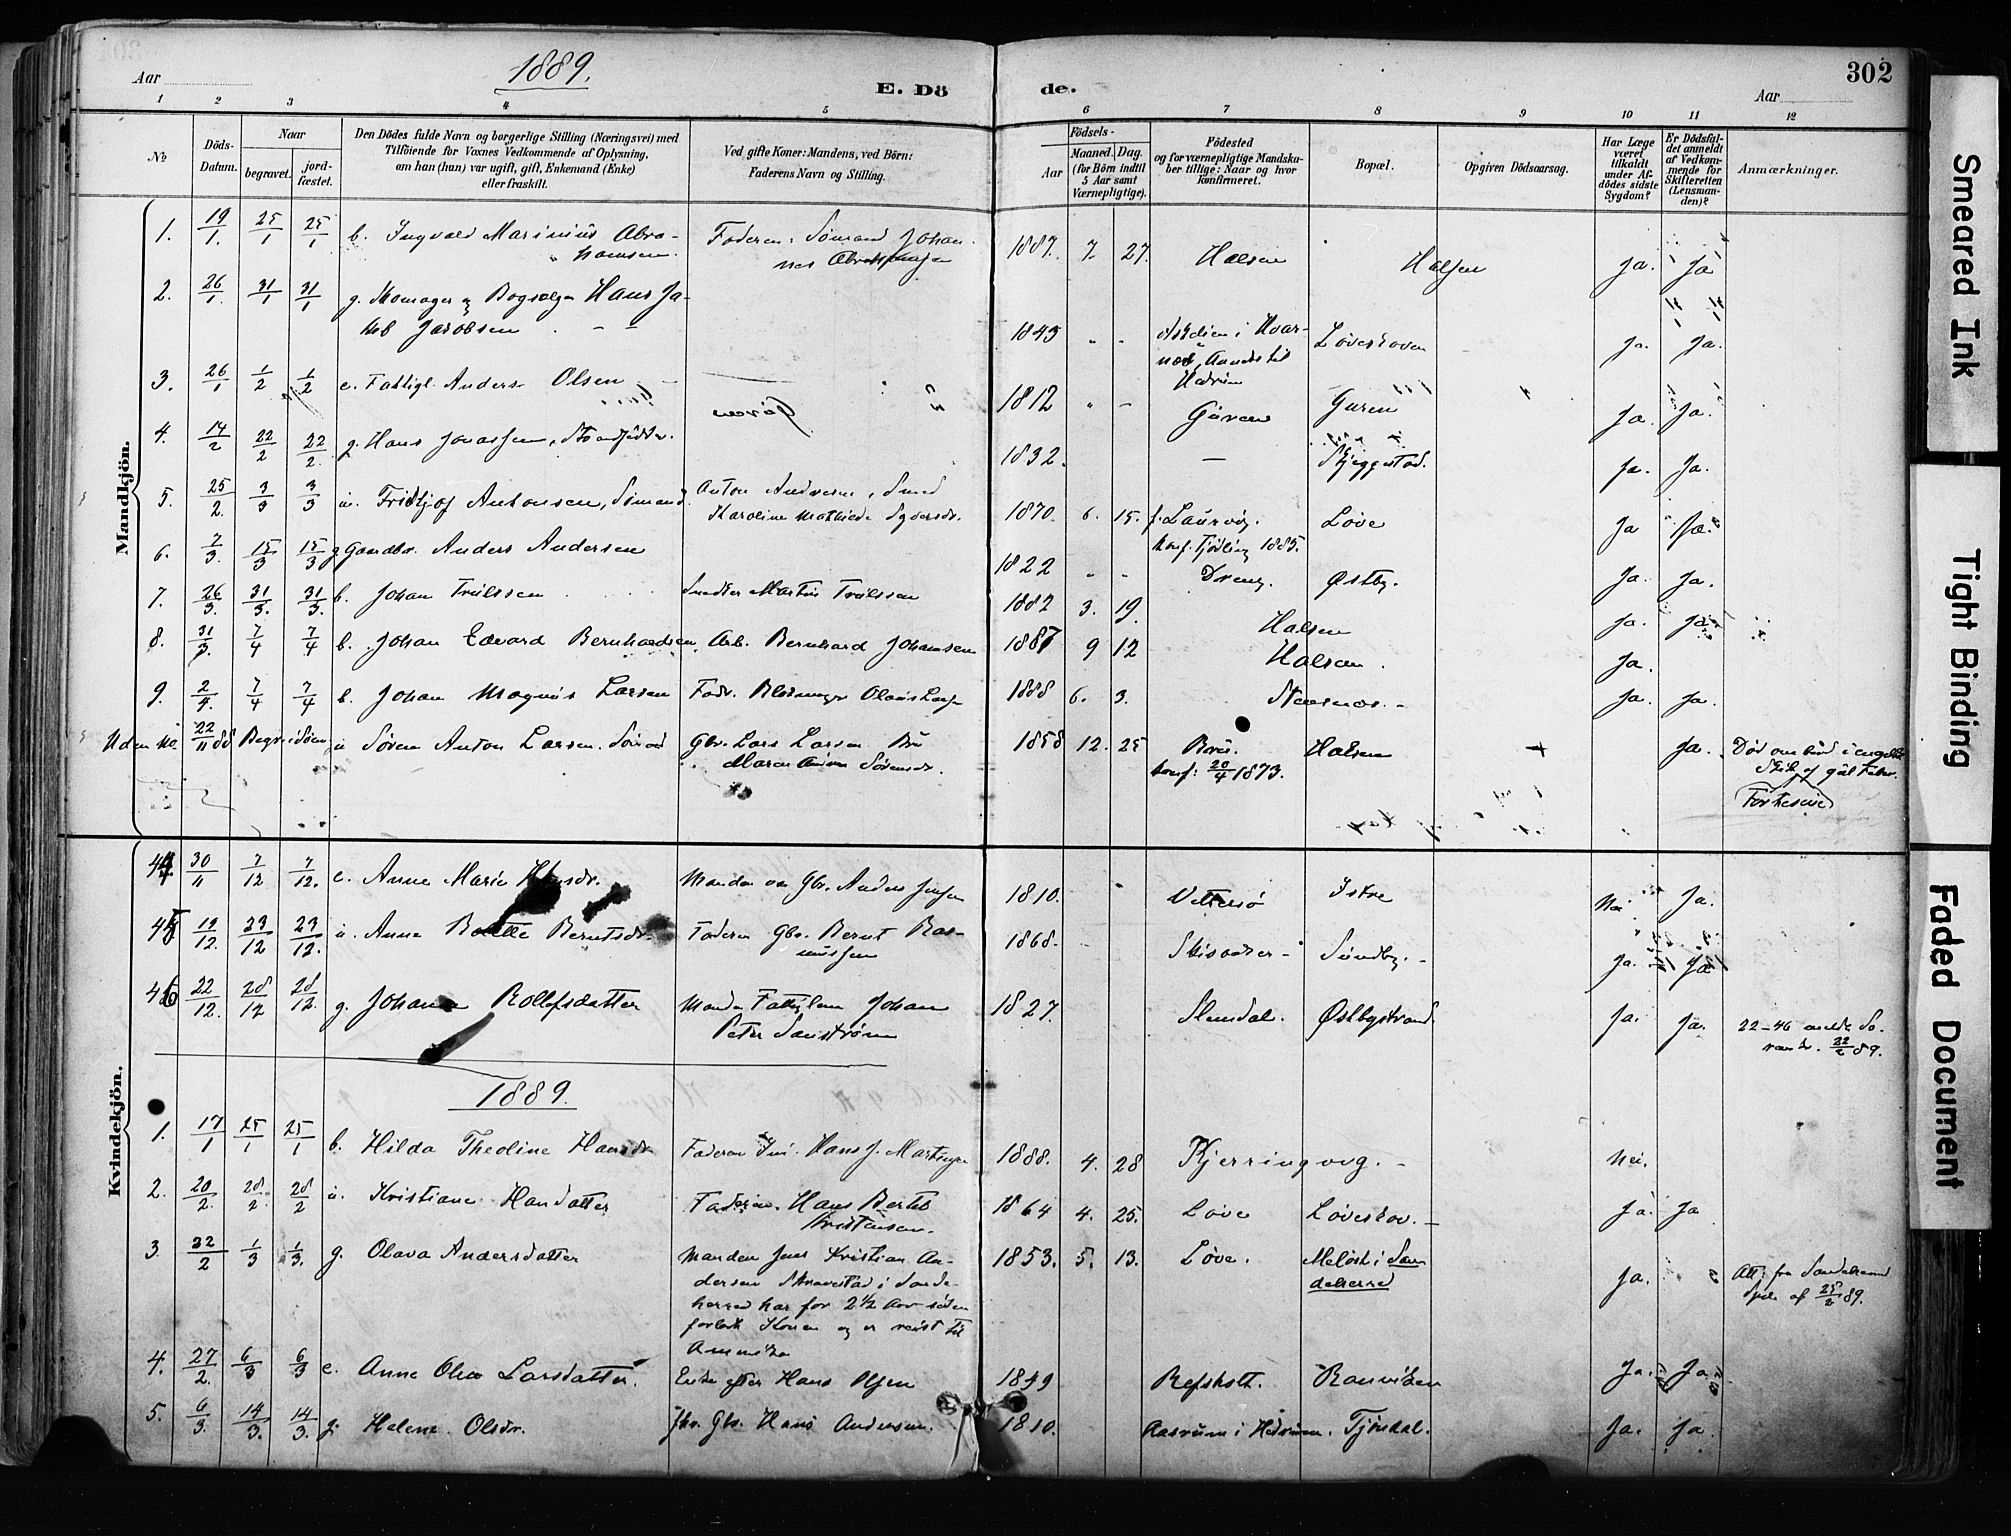 Aar
1889.
E. Döde.
Aar
302
1 2 3 4 5 6 7 8 9 10 11 12
No
Döds-Datum.
Naar
begravet.
jord-fæstet.
Den Dödes fulde Navn og borgerlige Stilling (Næringsvei) med
Tilföiende for Voxnes Vedkommende af Oplysning,
om han (hun) var ugift, gift, Enkemand (Enke)
eller fraskilt.
Ved gifte Koner: Mandens, ved Börn:
Faderens Navn og Stilling.
Födsels-
Aar
Maaned. Dag.
(for Börn indtil
5 Aar samt
Værnepligtige).
Födested
og for værnepligtige Mandska-
ber tillige: Naar og hvor
konfirmeret.
Bopæl.
Opgiven Dödsaarsag.
Har Læge
været
tilkaldt
under Af-
dödes sidste
Sygdom?
Er Dödsfal-
det anmeldt
af Vedkom-
mende for
Skifteretten
(Lensman-
den)?
Anmærkninger.
Mandkjön.
1. 19/1. 25/1 25/1 b. Ingvald Marinius Abra-
hamsen. Faderen: Sømand Johan-
nes 1887. 7. 27. Halsen Halsen Ja. Ja
2. 26/1. 31/1 31/1 g. Skomager og Bogsælger Hans Ja-
kob Jacobsen 1843 " " i Hvar-
nes, Hedrum Løveskoven Ja. Ja.
3. 26/1 1/2 1/2 e. Fattigl. Anders Olsen 1812 " - Guren Guren Ja. Ja.
4. 14/2 22/2 22/2. g. Hans Jonassen, 1832. — Skjeggestad. Ja. Ja.
5. 25/2. 3/3 3/3 u. Fridtjof Antonsen, Sømand Anton Andersen, Smed
Karoline Mathilde Syversdr. 1870 6. 15. f. Laurvig.
konf. Tjødling 1885. Løve Ja Ja.
6. 7/3. 15/3 15/3 g Gaardbr. Anders Andersen 1822 " - Dreng. Østby. Ja. Ja.
7. 26/3. 31/3. 31/3. b. Johan Trulssen Martin Trulssen 1882 3. 19. Halsen Ja. Ja
8. 31/3. 7/4 7/4 b. Johan Edvard Bernhardsen. Arb. Bernhard Johansen 1887 9 12 Halsen. Ja.
9. 2/4. 7/4 7/4 b. Johan Magnus Larsen Fadr. Olaus 1888 6. 3. Ja. Ja.
Uden No. 22/11 88 Begr. i Søen u Søren Anton Larsen. Sømd Gbr. Lars Larsen Bru
Maren Andrea Sørensdr. 1858 12. 25 Bru.
konf: 20/4 1873. Halsen + Ja. Død om bord i engelsk
Skib af gul Feber.
Kvindekjön.
44. 30/11 7/12 7/12. e. Anne Marie Manden var Gbr. Anders 1810. Vettersø Istre Nei. Ja.
45 19/12. 23/12 23/12. u. Anne Bolette Berntsdr. Faderen Gbr. Bernt Ras-
mussen 1868. Sundby. Ja. Ja
46 22/12. 28/12 28/12. g. Johanne Rollefsdatter Manden Fattiglem Johan
Peter 1827. Slemdal. Østbystrand. Ja. Ja. 22-46 22/2 89.
1889.
1. 17/1 25/1 25/1 b. Hilda Theoline Hansdr. Faderen Hans J. 1888. 4. 28 Kjerringvig. - Nei.
2. 20/2. 28/2. 28/2 u. Kristiane Handatter Faderen. Hans Bertel
Kristensen. 1864 4. 25. Løve Løveskov. - Ja. Ja
3. 22/2 1/3 1/3. g. Olava Andersdatter Manden Jens Kristian An-
dersen i Sande-
herred har for 2½ Aar siden
forladt Konen og er reist til
Amerika 1853. 5. 13. Løve. i San-
deherred Ja. Att: fra Sandeherred
af 25/2 89.
4. 27/2. 6/3 6/3 e. Anne Olea Larsdatter. Enke efter Hans Olsen 1849 Refsholt. Ranviken Ja. Ja.
5. 6/3. 14/3. 14/3. g. Helene Olsdr. Gbr. Hans Andersen. 1810. Aasrum i Hedrum. Tjøndal. Ja. Ja
Smeared Ink
Tight Binding
Faded Document